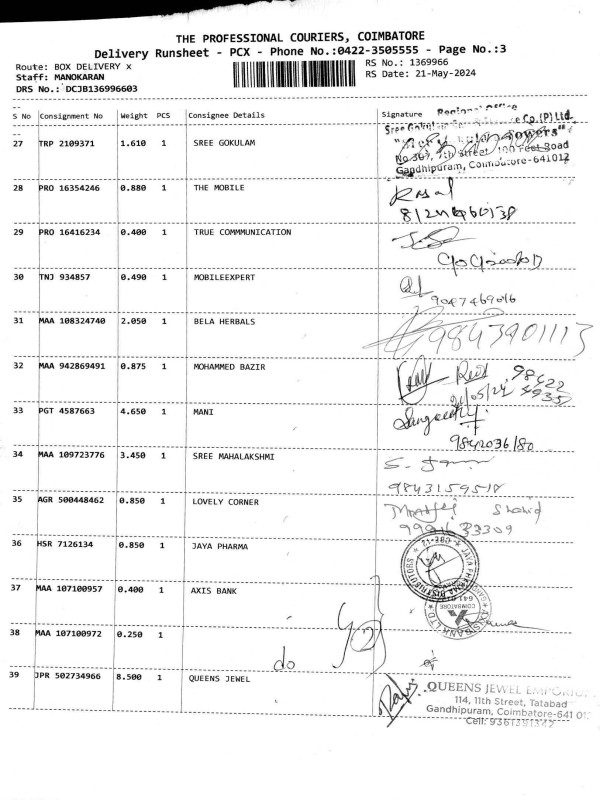 THE PROFESSIONAL COURIERS, COIMBATORE
Delivery Runsheet - PCX - Phone No.:0422-3505555 - Page No.:3
Route: BOX DELIVERY x
Staff: MANOKARAN
DRS No.: DCJB136996603
RS No.: 1369966
RS Date: 21-May-2024
S No Consignment No Weight PCS Consignee Details Signature
Regional Office
27 TRP 2109371 1.610 1 SREE GOKULAM
Sree Gokulam Co.(P)Ltd
Towers"
No 367, 7th Street 100 Feet Road
Gandhipuram, Coimbatore-641012
28 PRO 16354246 0.880 1 THE MOBILE
29 PRO 16416234 0.400 1 TRUE COMMMUNICATION
30 TNJ 934857 0.490 1 MOBILEEXPERT
9047469016
31 MAA 108324740 2.050 1 BELA HERBALS
9843901113
32 MAA 942869491 0.875 1 MOHAMMED BAZIR
98422
21/05/24 49357
33 PGT 4587663 4.650 1 MANI
9842036180
34 MAA 109723776 3.450 1 SREE MAHALAKSHMI
9843159518
35 AGR 500448462 0.850 1 LOVELY CORNER
Shahid
9991633309
36 HSR 7126134 0.850 1 JAYA PHARMA
JAYA PHARMA DISTRIBUTORS
37 MAA 107100957 0.400 1 AXIS BANK
AXIS BANK LTD
COIMBATORE
38 MAA 107100972 0.250 1
do
39 JPR 502734966 8.500 1 QUEENS JEWEL
QUEENS JEWEL EMPORIUM
114, 11th Street, Tatabad
Gandhipuram, Coimbatore-641 01
Cell: 9361391342